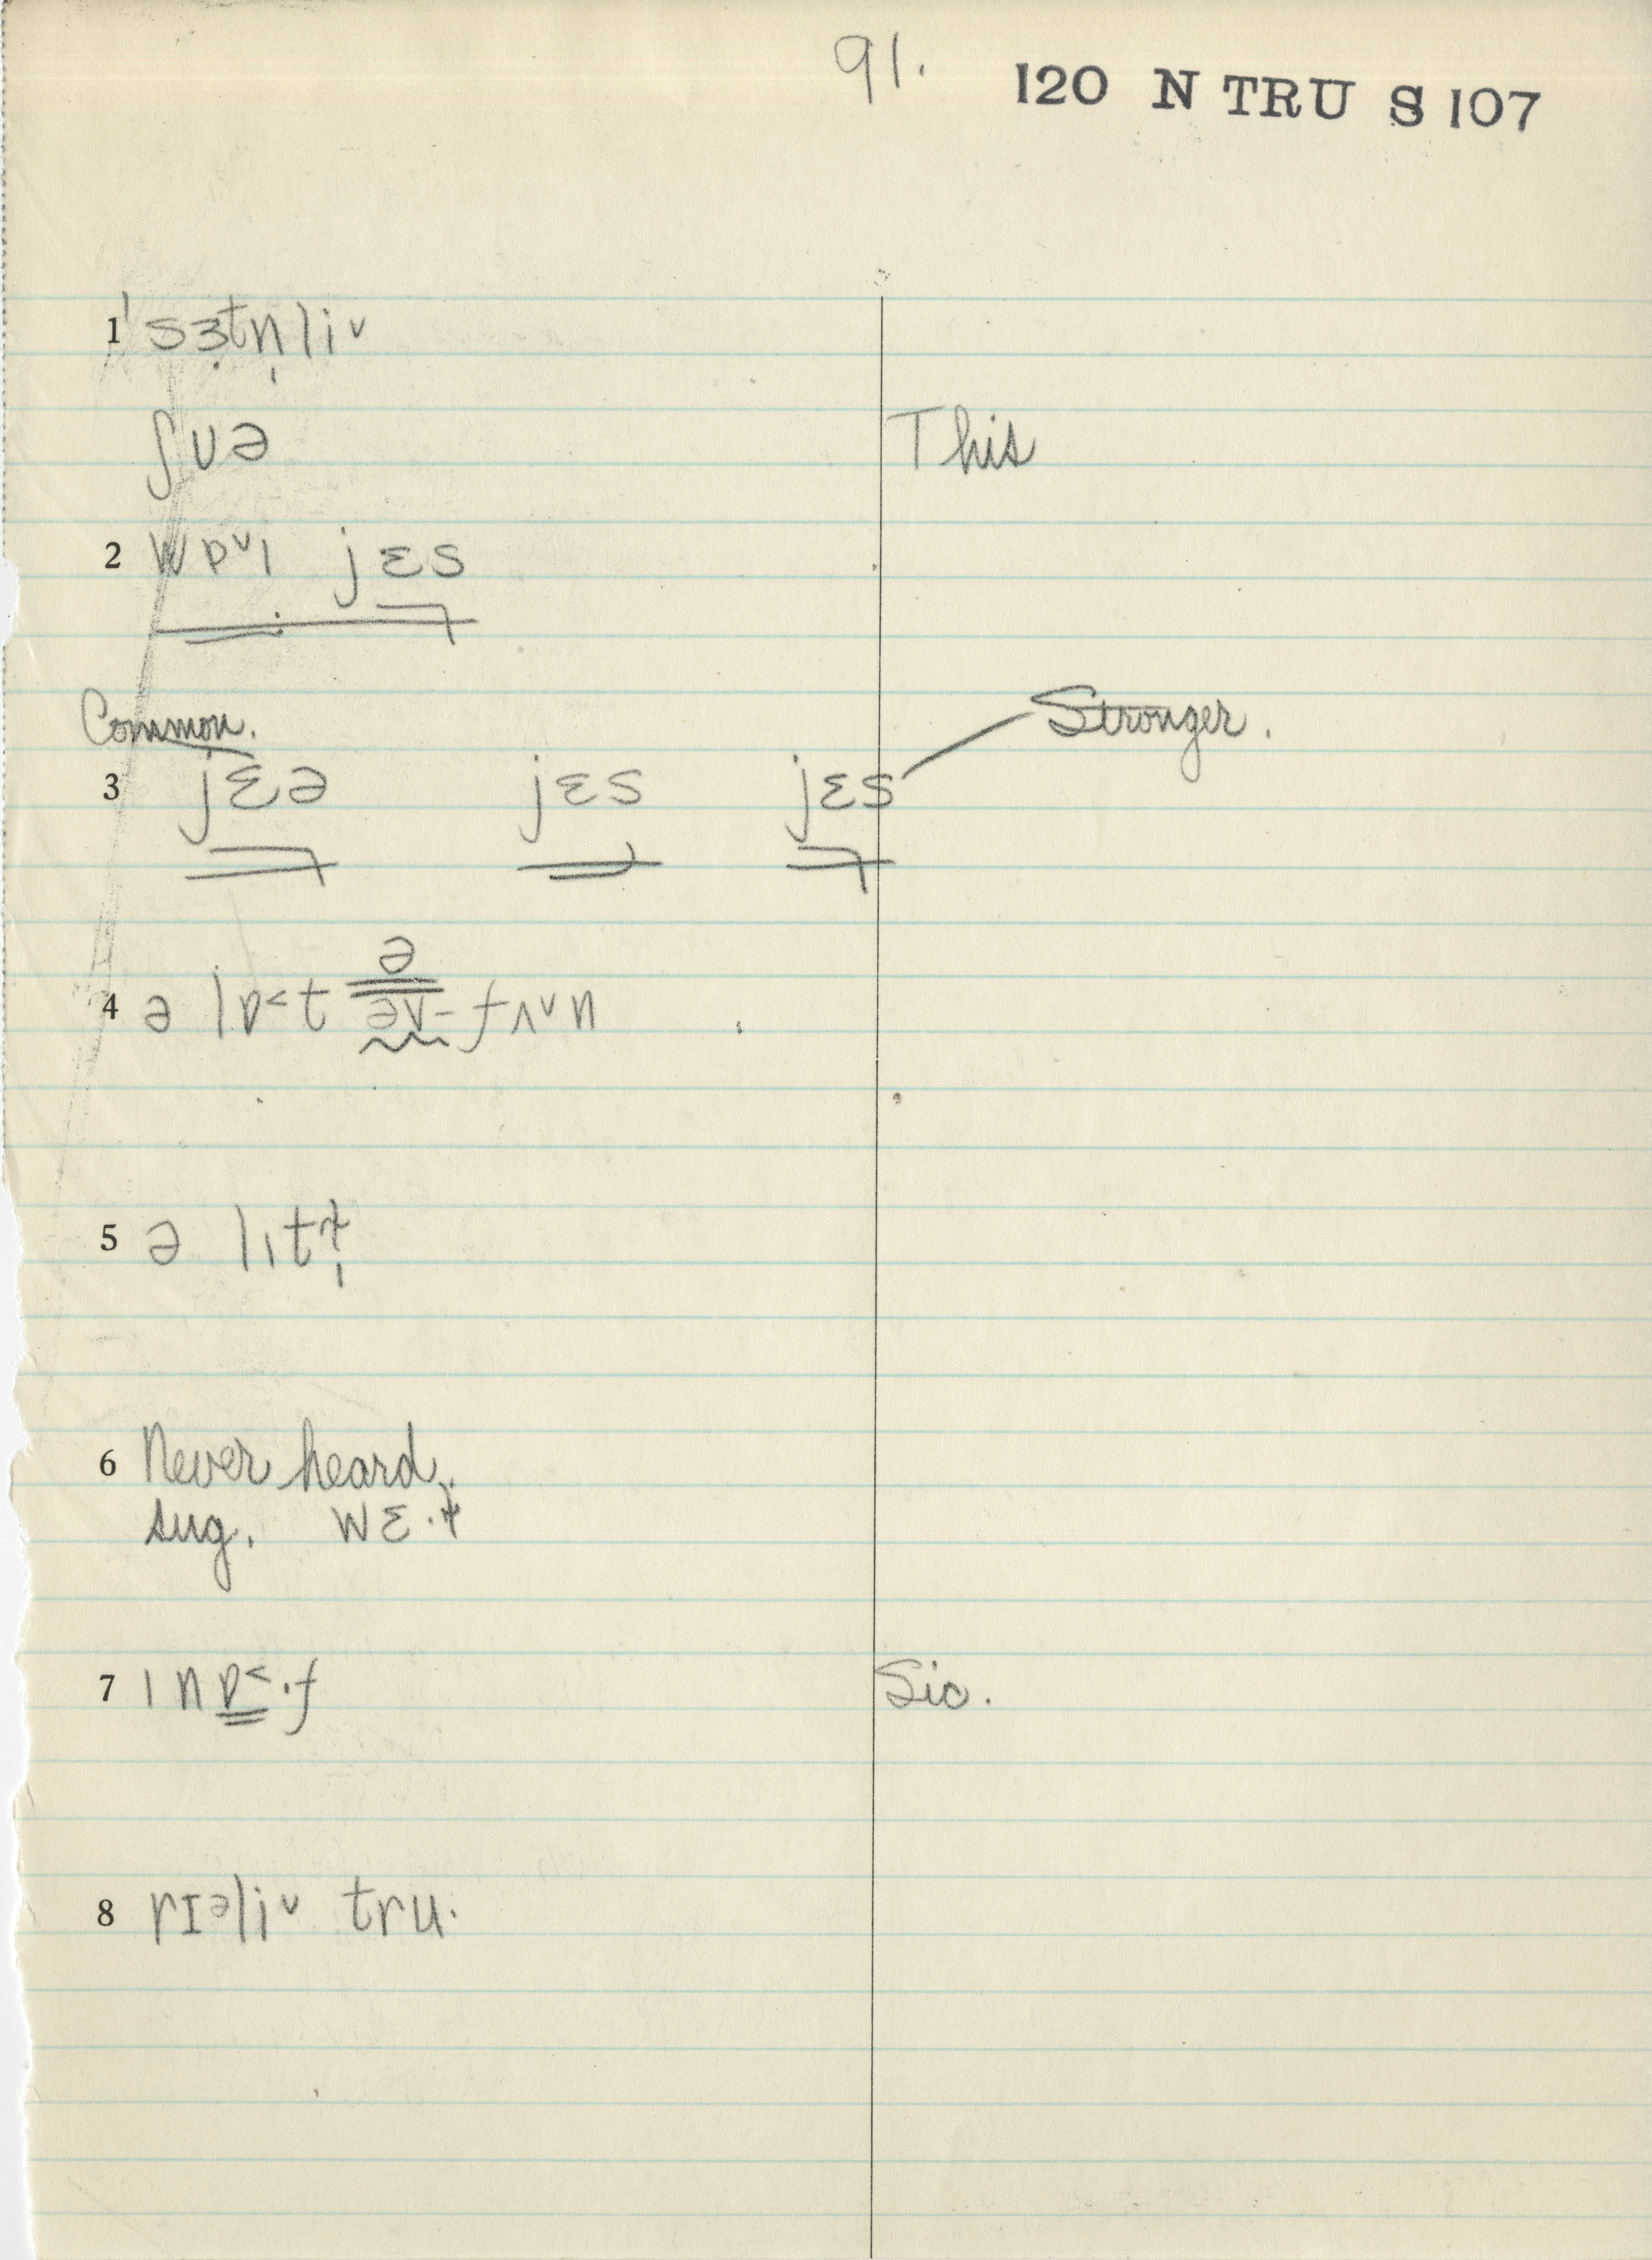 91. 120 N TRU S 107
1 ˈsɜ̣tn̩liˇ
ʃʊə This
2 wɒˇɪ jɛs
Common. Stronger.
3 jɛə jɛs jɛs
ə
4 ə lɒ˂t əv- fʌˇn
5 ə lɪtɫ̩
6 Never heard.
sug. wɛ·ɫ
7 ɪnɒ˂·f Sic.
8 rɪəliˇ tru·